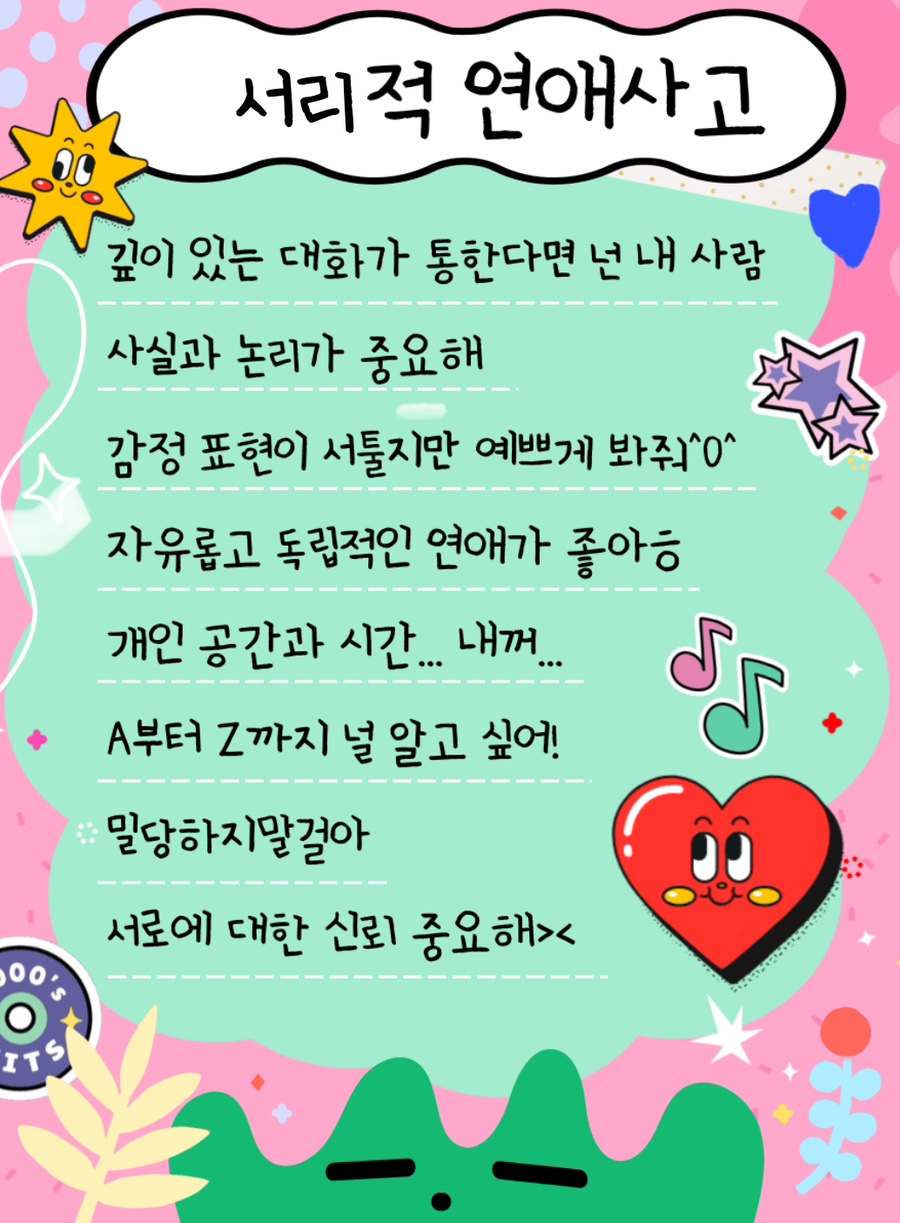 서리적 연애사고
깊이 있는 대화가 통한다면 넌 내 사람
사실과 논리가 중요해
감정 표현이 서툴지만 예쁘게 봐줘^0^
자유롭고 독립적인 연애가 좋아ㅎ
개인 공간과 시간... 내꺼...
A부터 Z까지 널 알고 싶어!
밀당하지말걸아
서로에 대한 신뢰 중요해><
000's
ITS